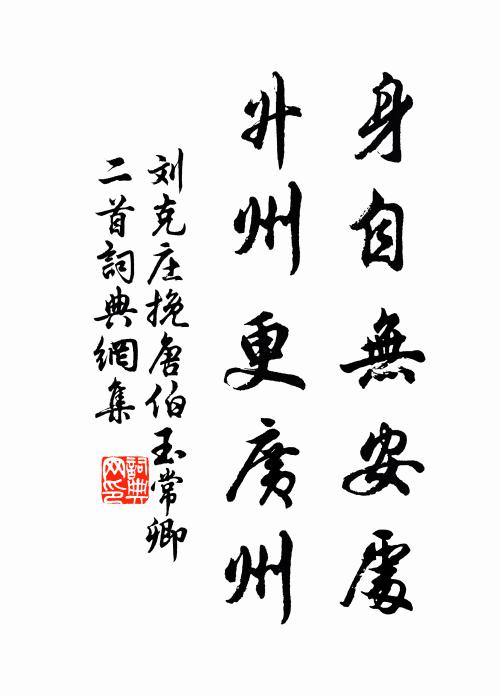 身自無安處
升州更廣州
刘克庄挽唐伯玉常卿
二首詞典網集
詞典网印